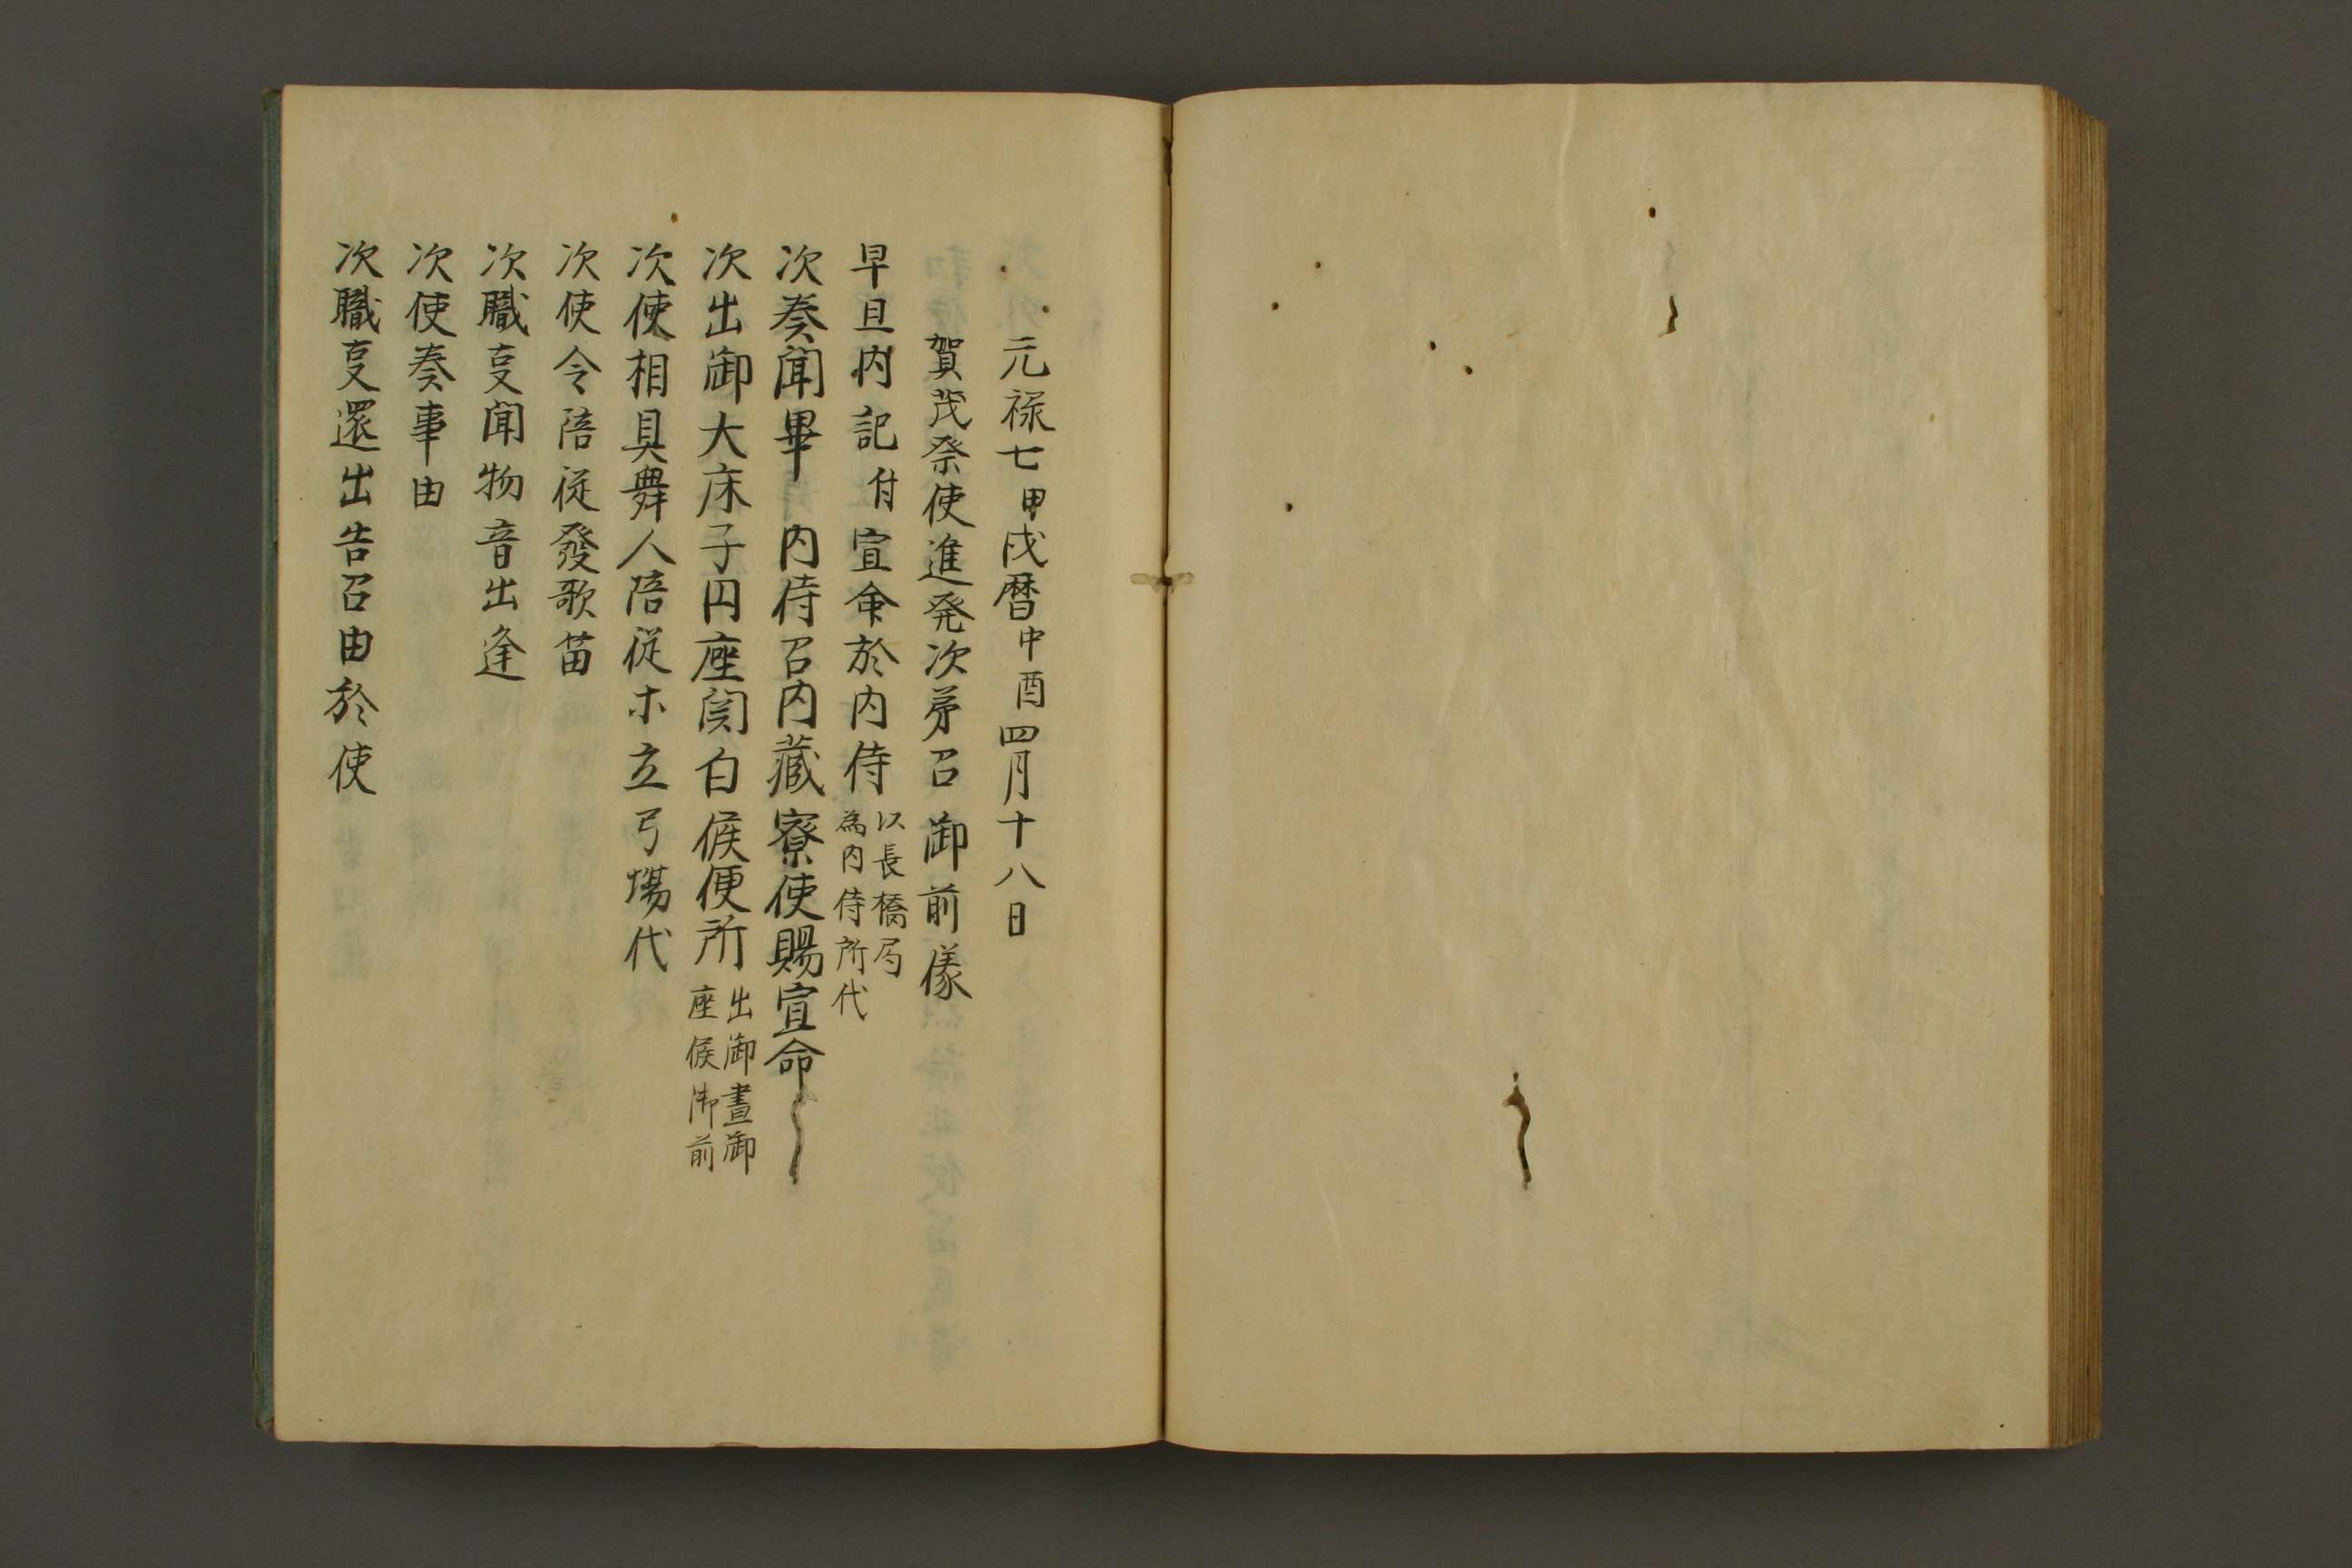 元禄七甲戌暦中酉四月十八日
賀茂祭使進発次苐召御前儀
早旦内記付宣命於内侍以長橋局
為内侍所代
次奏聞畢内侍召内藏寮使賜宣命
次出御大床子円座関白候便所出御晝御
座候御前
次使相具舞人陪従ホ立弓場代
次使令陪従發歌笛
次職事聞物音出逢
次使奏事由
次職事還出告召由於使